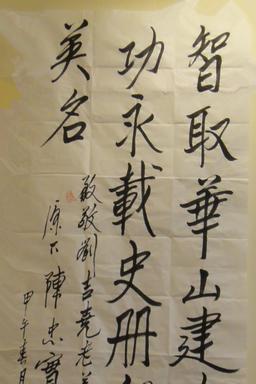 智取華山建
功永載史冊
英名
敬劉吉堯老
原下陳忠實
甲午春月